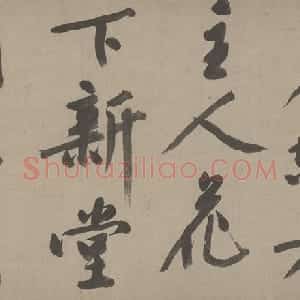 主人花
下新堂
Shufaziliao.com